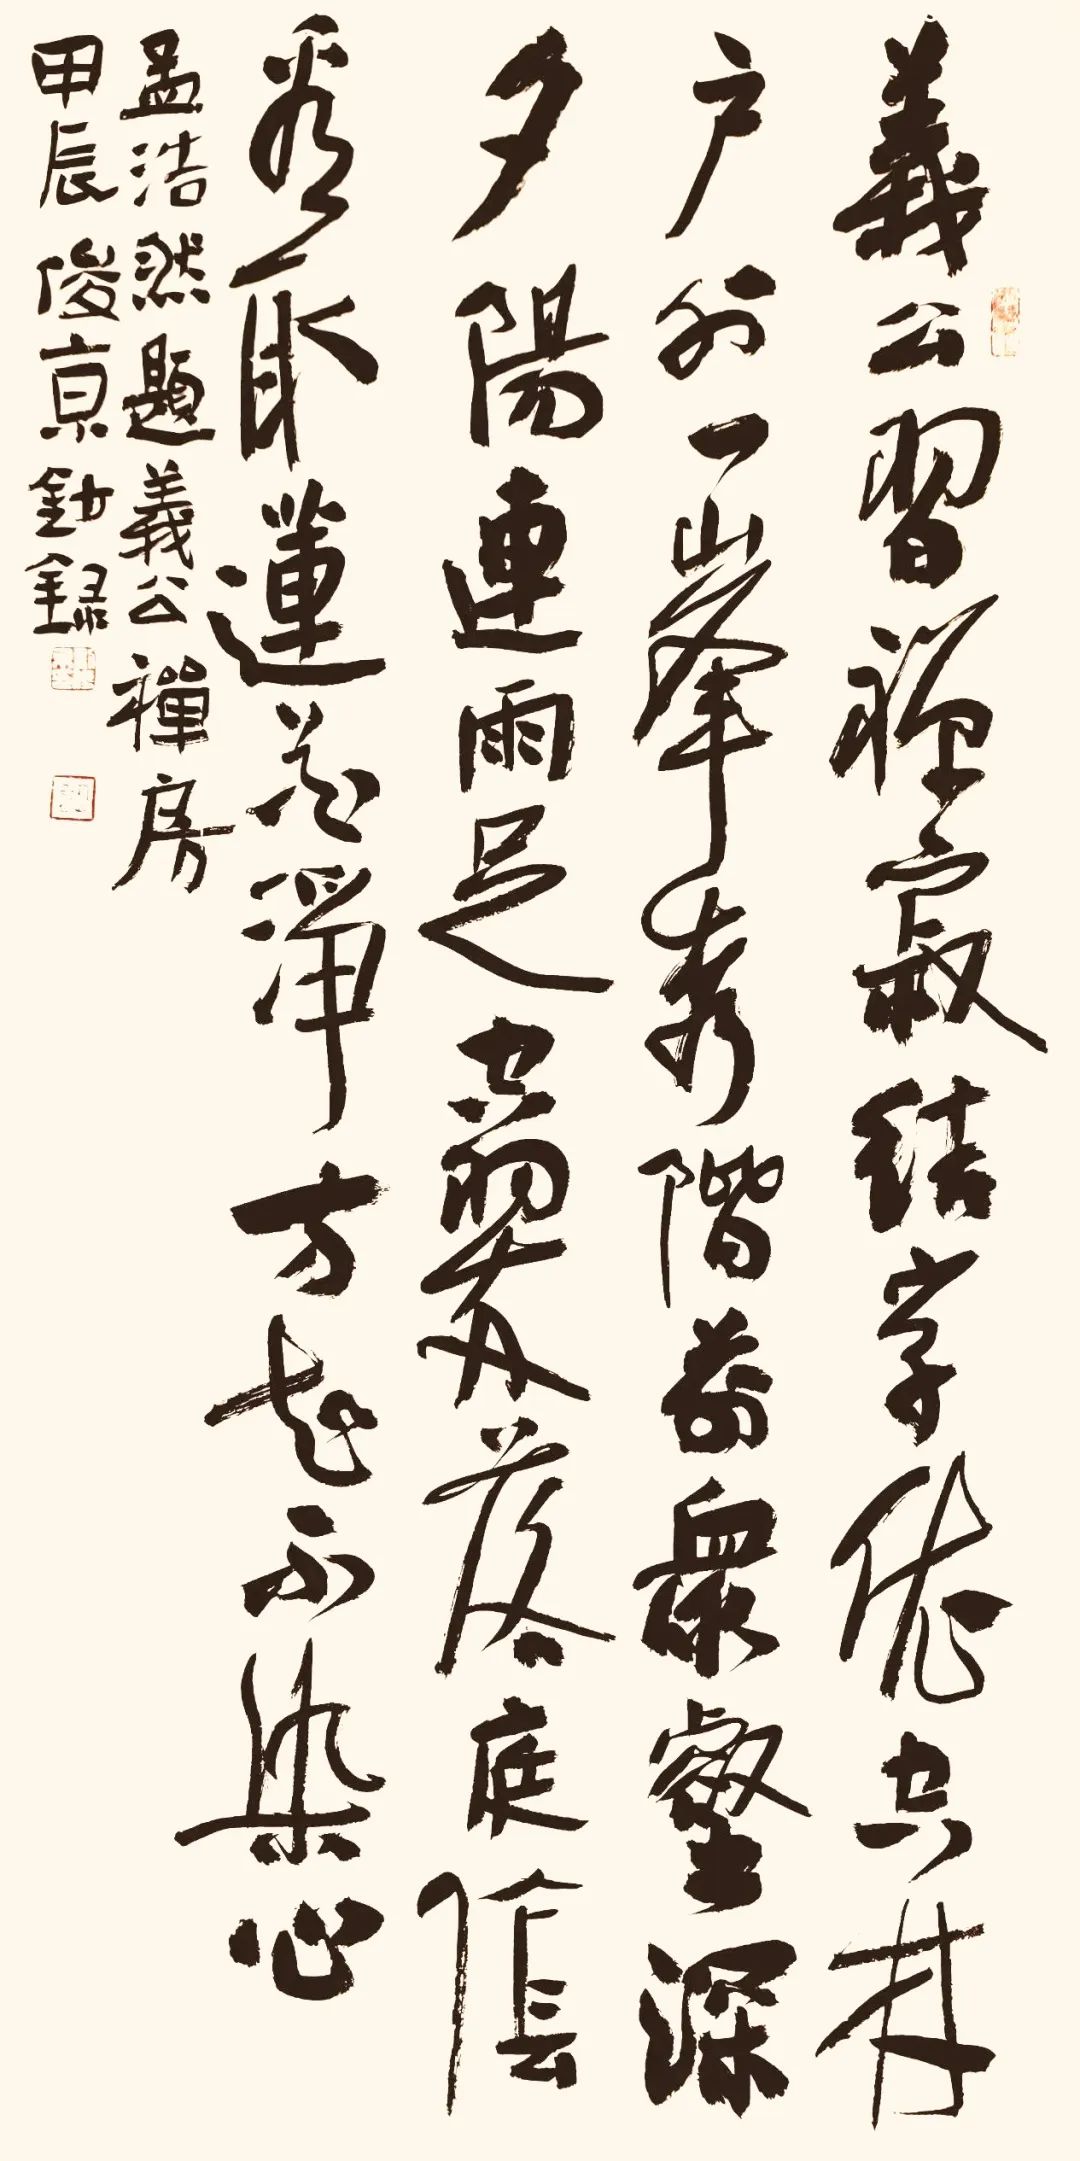 義公習禪寂結宇依空林
户外一峯秀階前眾壑深
夕陽連雨足空翠落庭陰
看取蓮花淨方知不染心
孟浩然題義公禪房
甲辰俊京鈔錄